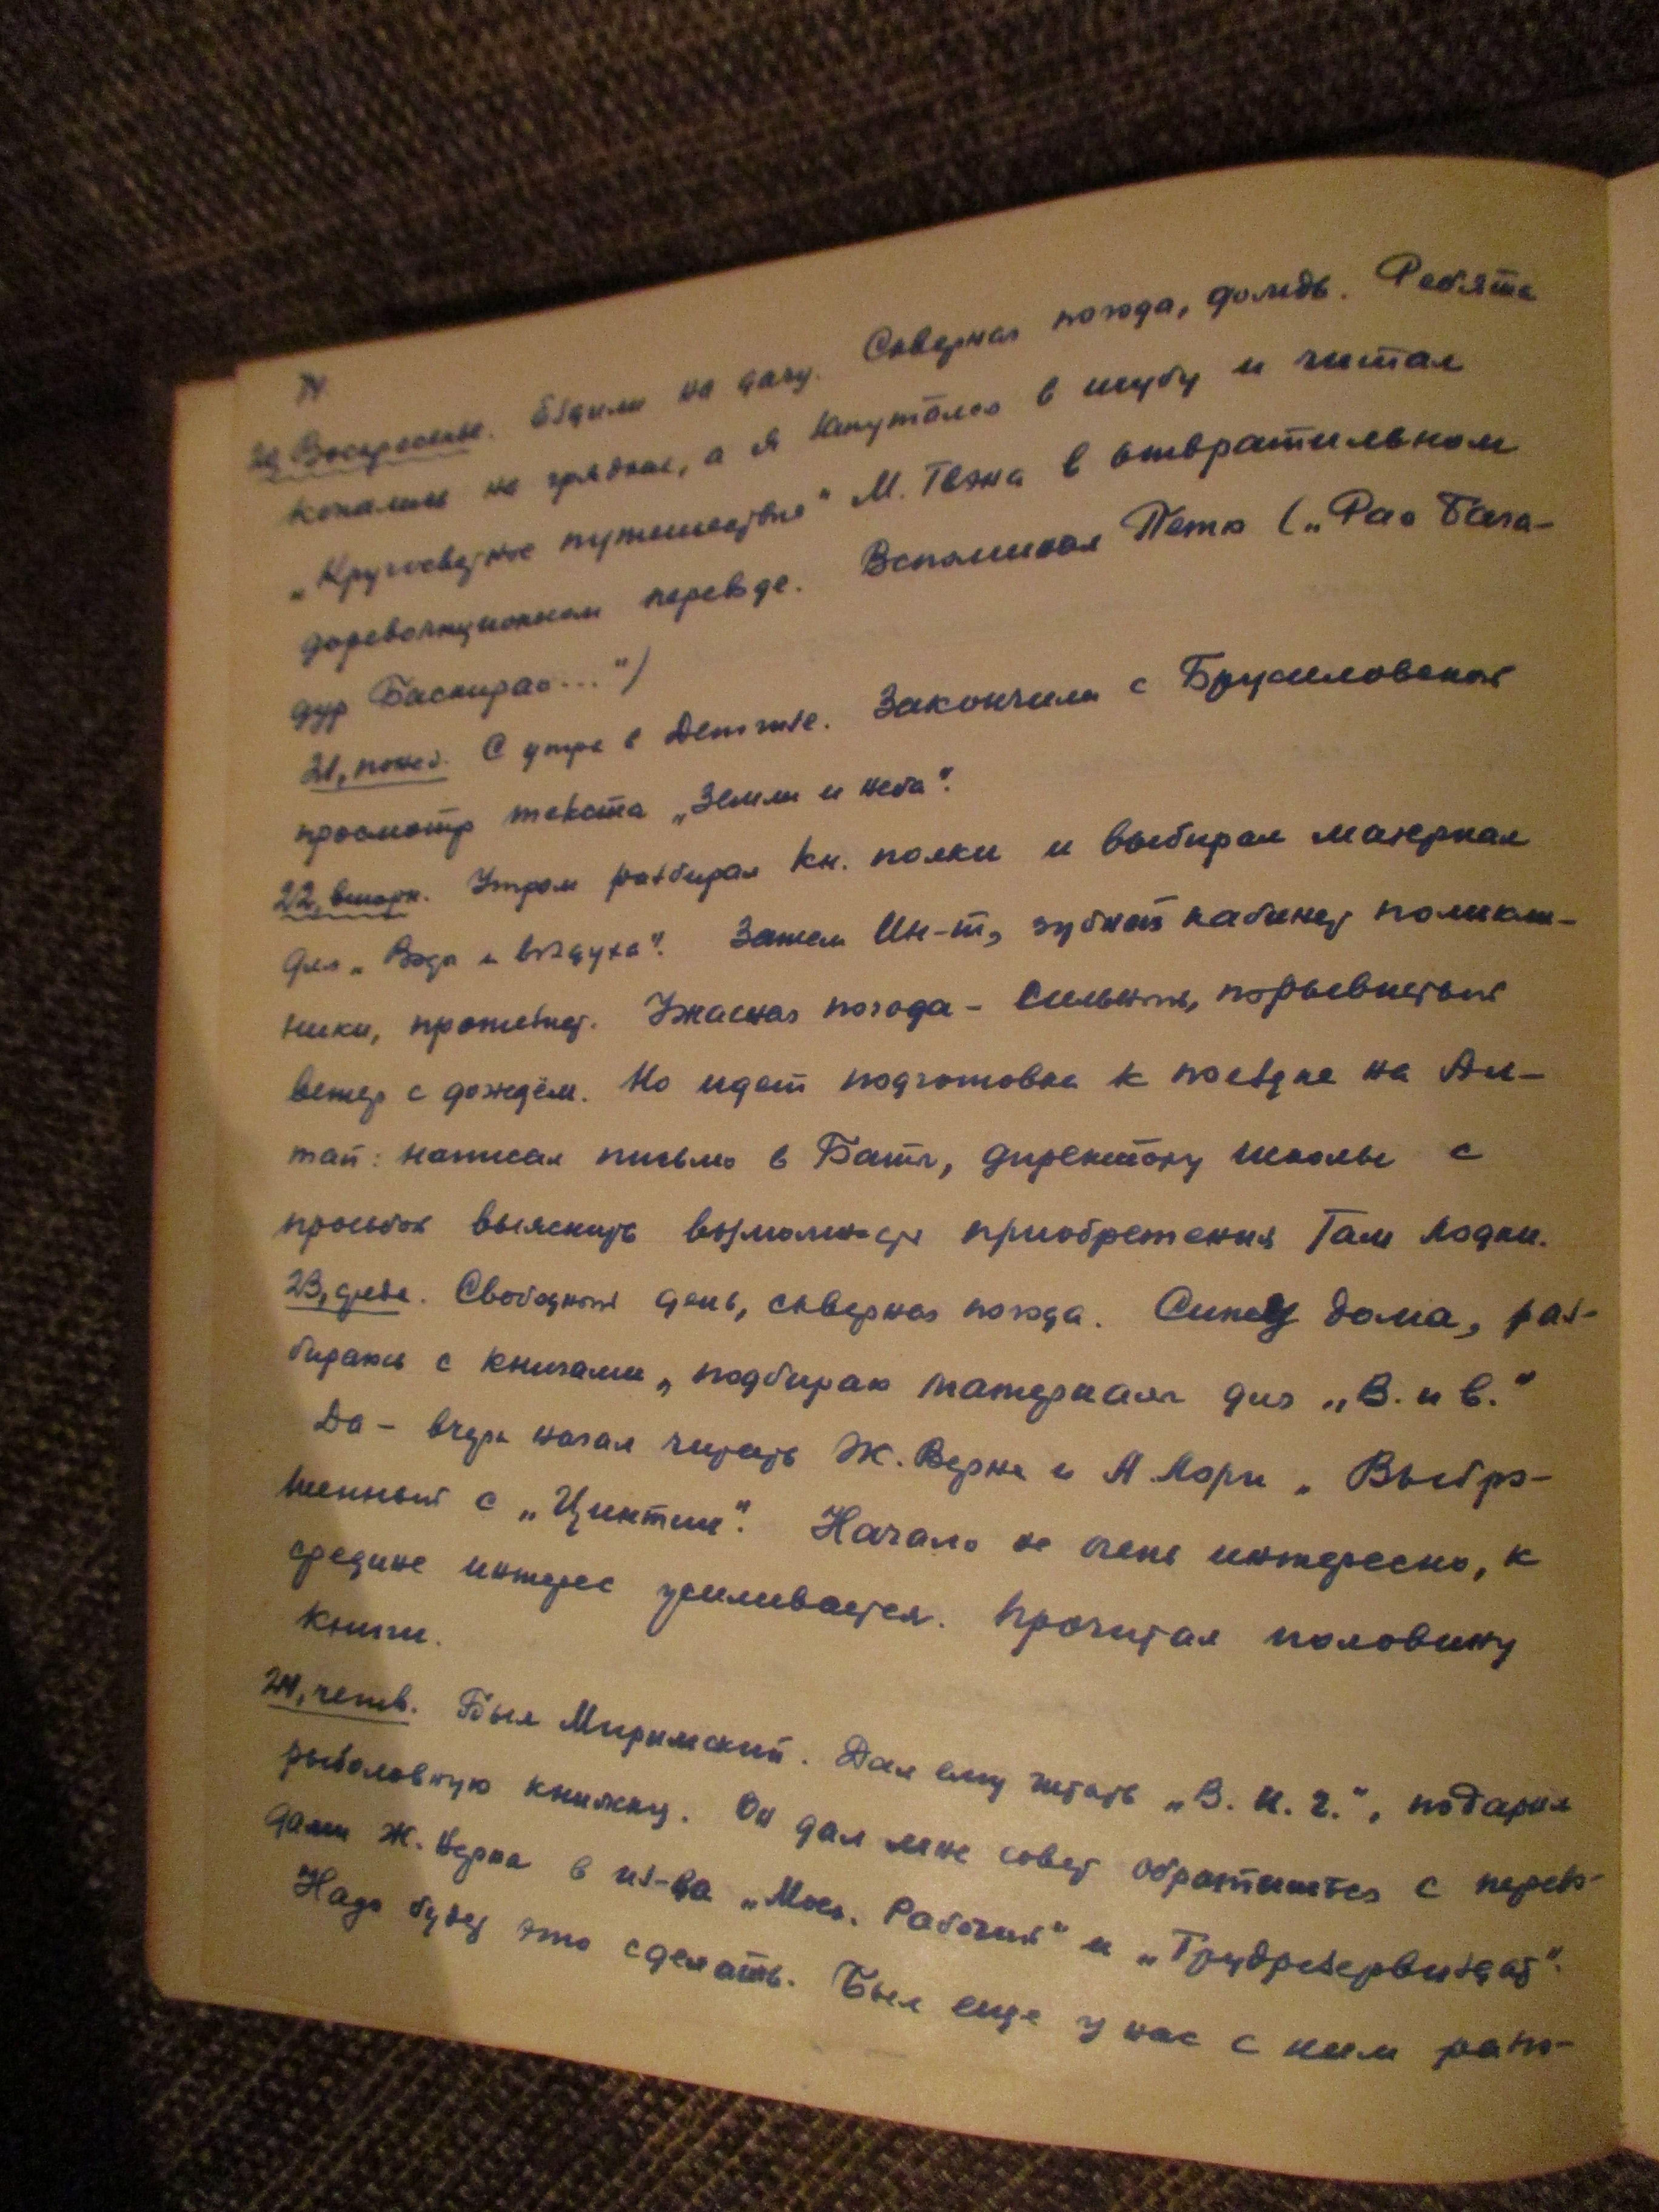 74.
20, Воскресенье. Ездили на дачу. Скверная погода, дождь. Ребята
копались на грядках, а я закутался в шубу и читал
„Кругосветное путешествие" М. Твэна в отвратительном
дореволюционном переводе. Вспоминал Петю („Рао Баха-
дур Баскирао...")
21, понед. С утра в Детгизе. Закончили с Брусиловской
просмотр текста „Земли и неба".
22, вторн. Утром разбирал кн. полки и выбирал материал
для „Воды и воздуха". Затем Ин-т, зубной кабинет поликли-
ники, протезист. Ужасная погода - сильный, порывистый
ветер с дождём. Но идет подготовка к поездке на Ал-
тай: написал письмо в директору школы с
просьбой выяснить возможность приобретения там лодки.
23, среда. Свободный день, скверная погода. Сижу дома, раз-
бираюсь с книгами, подбираю материалы для „В. и в."
Да - вчера начал читать Ж. Верна и А. Лори „Выбро-
шенный с „Цинтии". Начало не очень интересно, к
средине интерес усиливается. Прочитал половину
книги.
24, четв. Был Миримский. Дал ему читать „В. и. г.", подарил
рыболовную книжку. Он дал мне совет обратиться с перево-
дами Ж. Верна в из-ва „Моск. Рабочий" и „Трудрезервиздат".
Надо будет это сделать. Был еще у нас с ним разго-